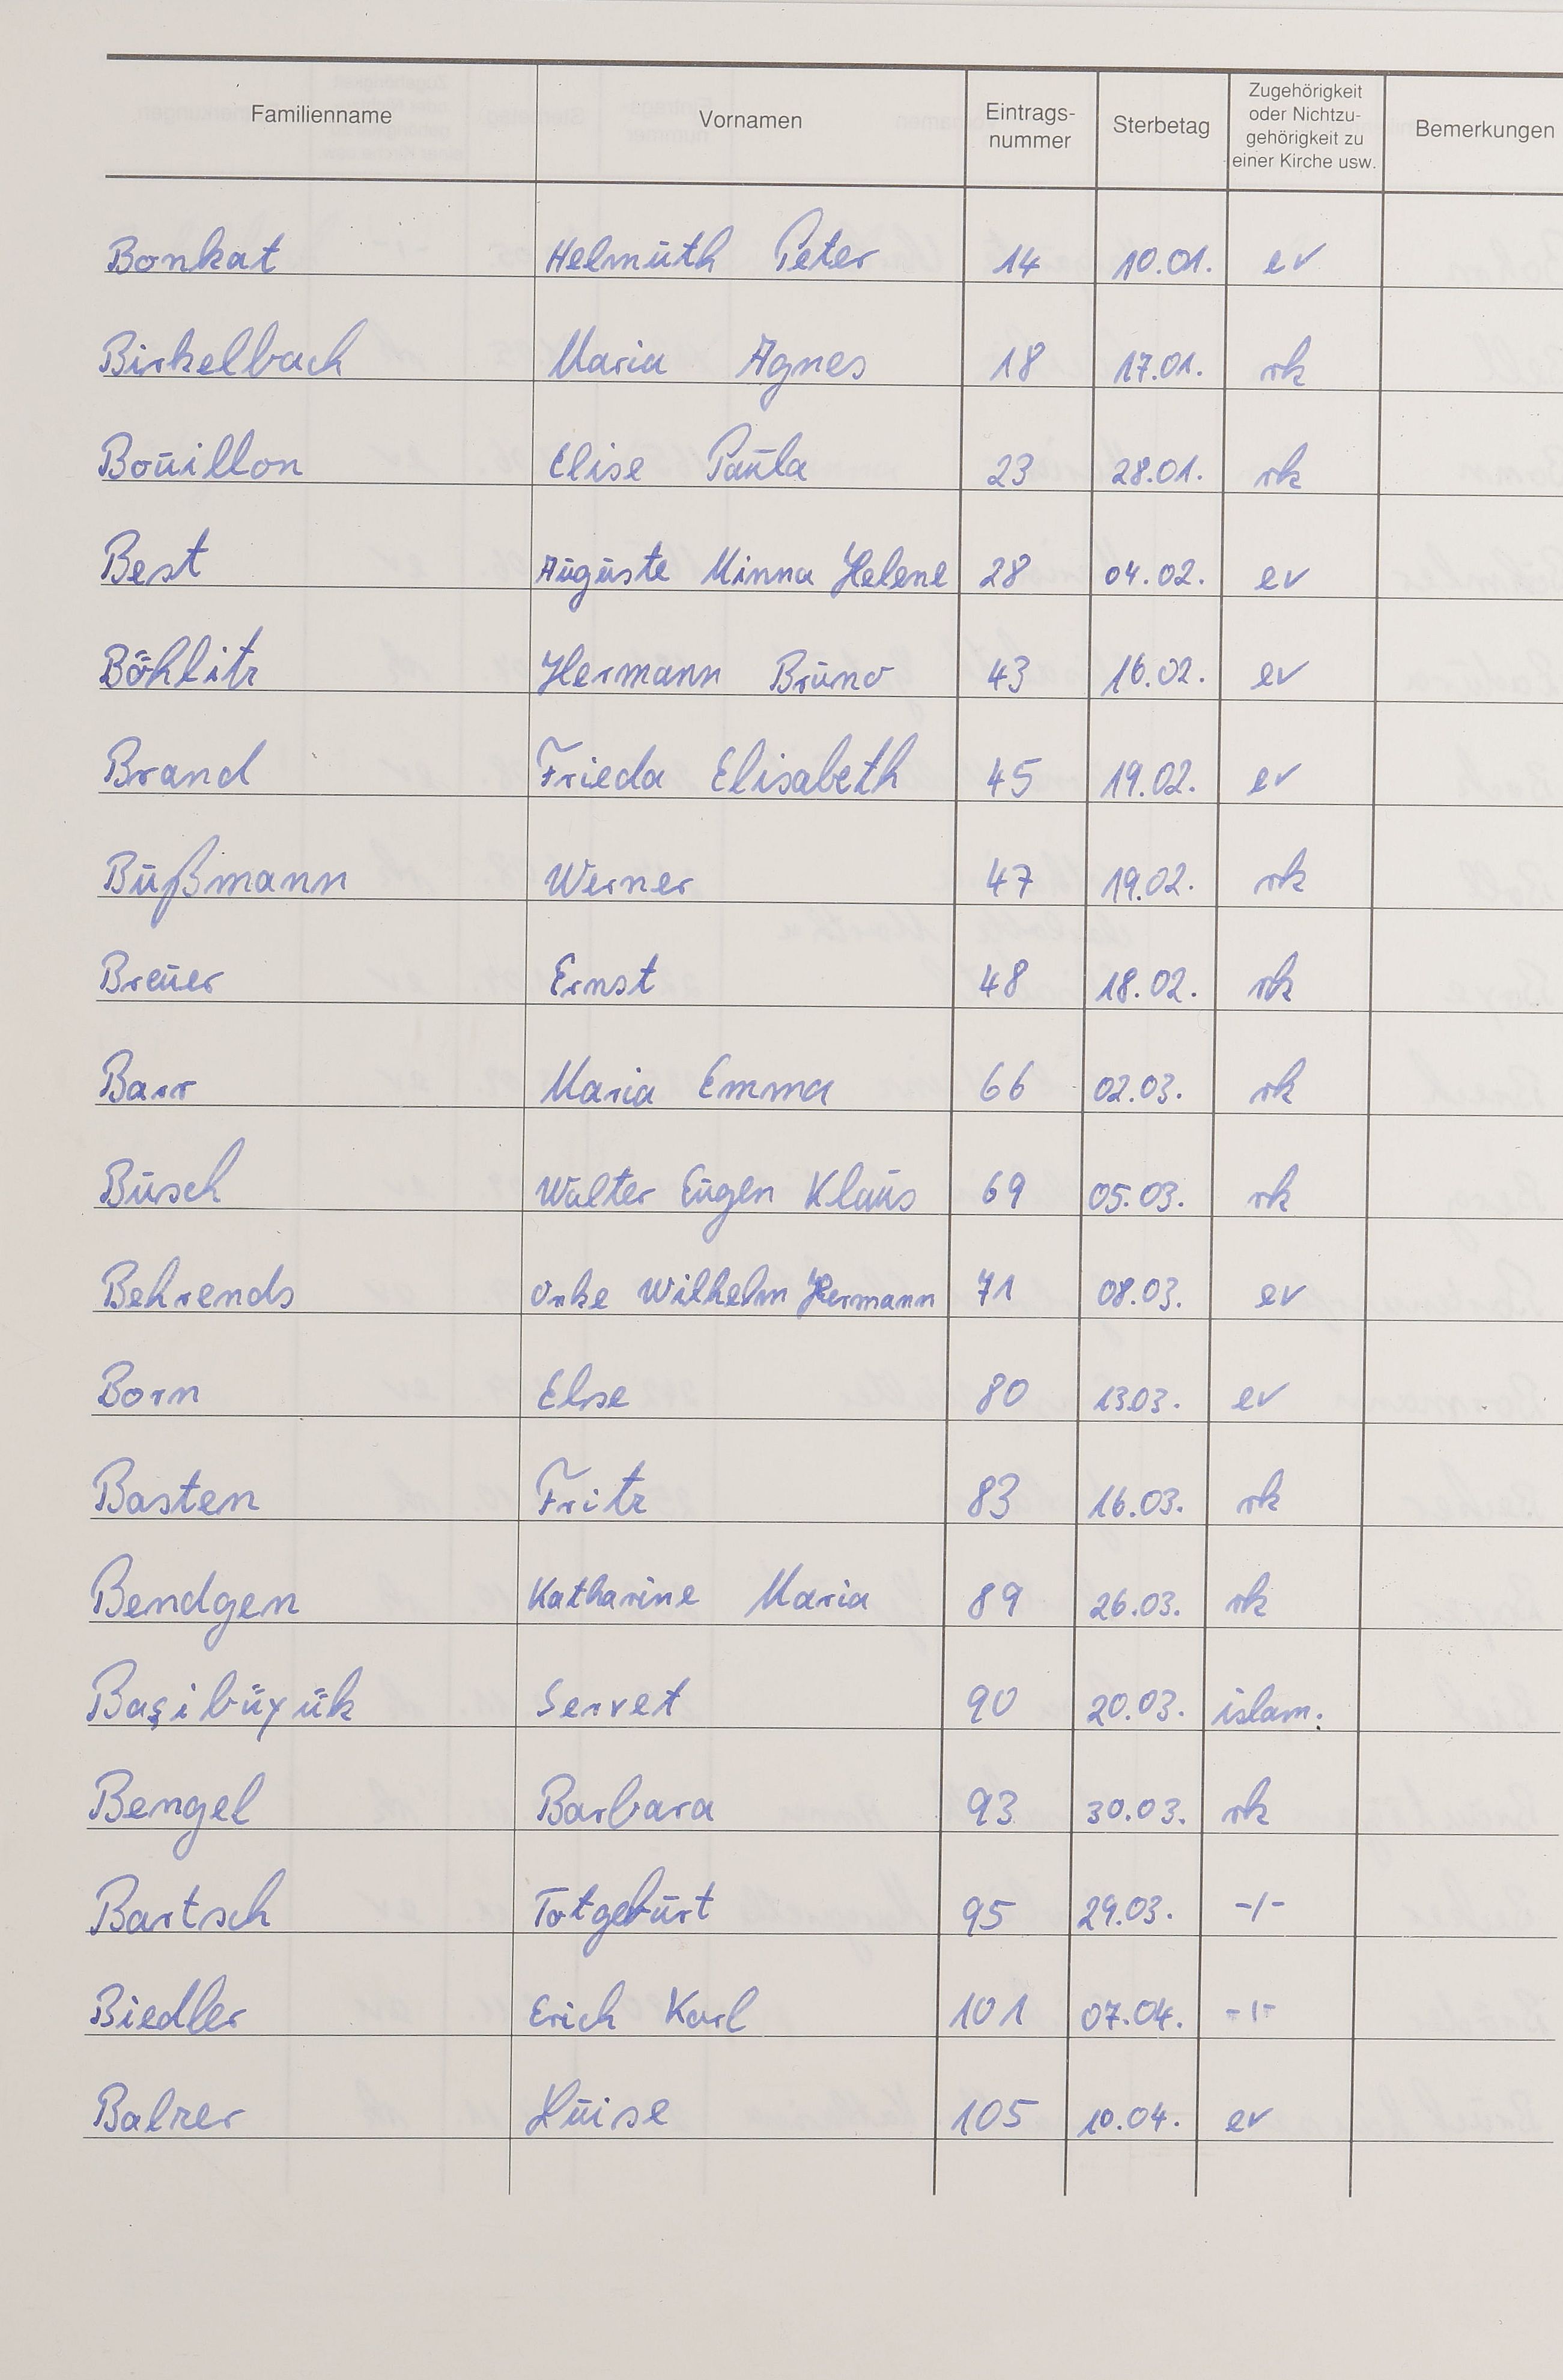 Familienname Vornamen Eintrags-nummer Sterbetag Zugehörigkeit oder Nichtzu-gehörigkeit zu einer Kirche usw. Bemerkungen
Bonkat Helmuth Peter 14 10.01. ev
Birkelbach Maria Agnes 18 17.01. rk
Bouillon Elise Paula 23 28.01. rk
Best Auguste Minna Helene 28 04.02. ev
Böhlitz Hermann Bruno 43 16.02. ev
Brand Frieda Elisabeth 45 19.02. ev
Bußmann Werner 47 19.02. rk
Breuer Ernst 48 18.02. rk
Barr Maria Emma 66 02.03. rk
Busch Walter Eugen Klaus 69 05.03. rk
Behrends Onke Wilhelm Hermann 71 08.03. ev
Born Else 80 13.03. ev
Basten Fritz 83 16.03. rk
Bendgen Katharine Maria 89 26.03. rk
Başibüyük Servet 90 20.03. islam.
Bengel Barbara 93 30.03. rk
Bartsch Totgeburt 95 29.03. -/-
Biedler Erich Karl 101 07.04. -/-
Balzer 105 10.04. ev